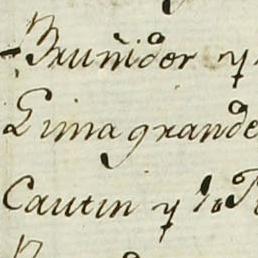 Bruñidor y
Lima grande
Cautin y